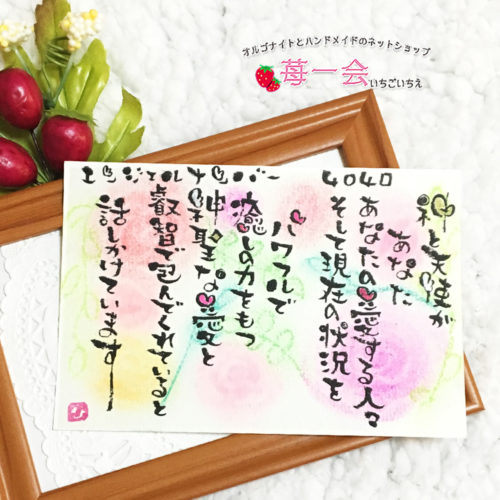 オルゴナイトとハンドメイドのネットショップ
苺一会
いちごいちえ
エンジェルナンバー 4040
神と天使が
あなた
あなたの愛する人々
そして現在の状況を
パワフルで
癒しの力をもつ
神聖な愛と
叡智で包んでくれていると
話しかけています